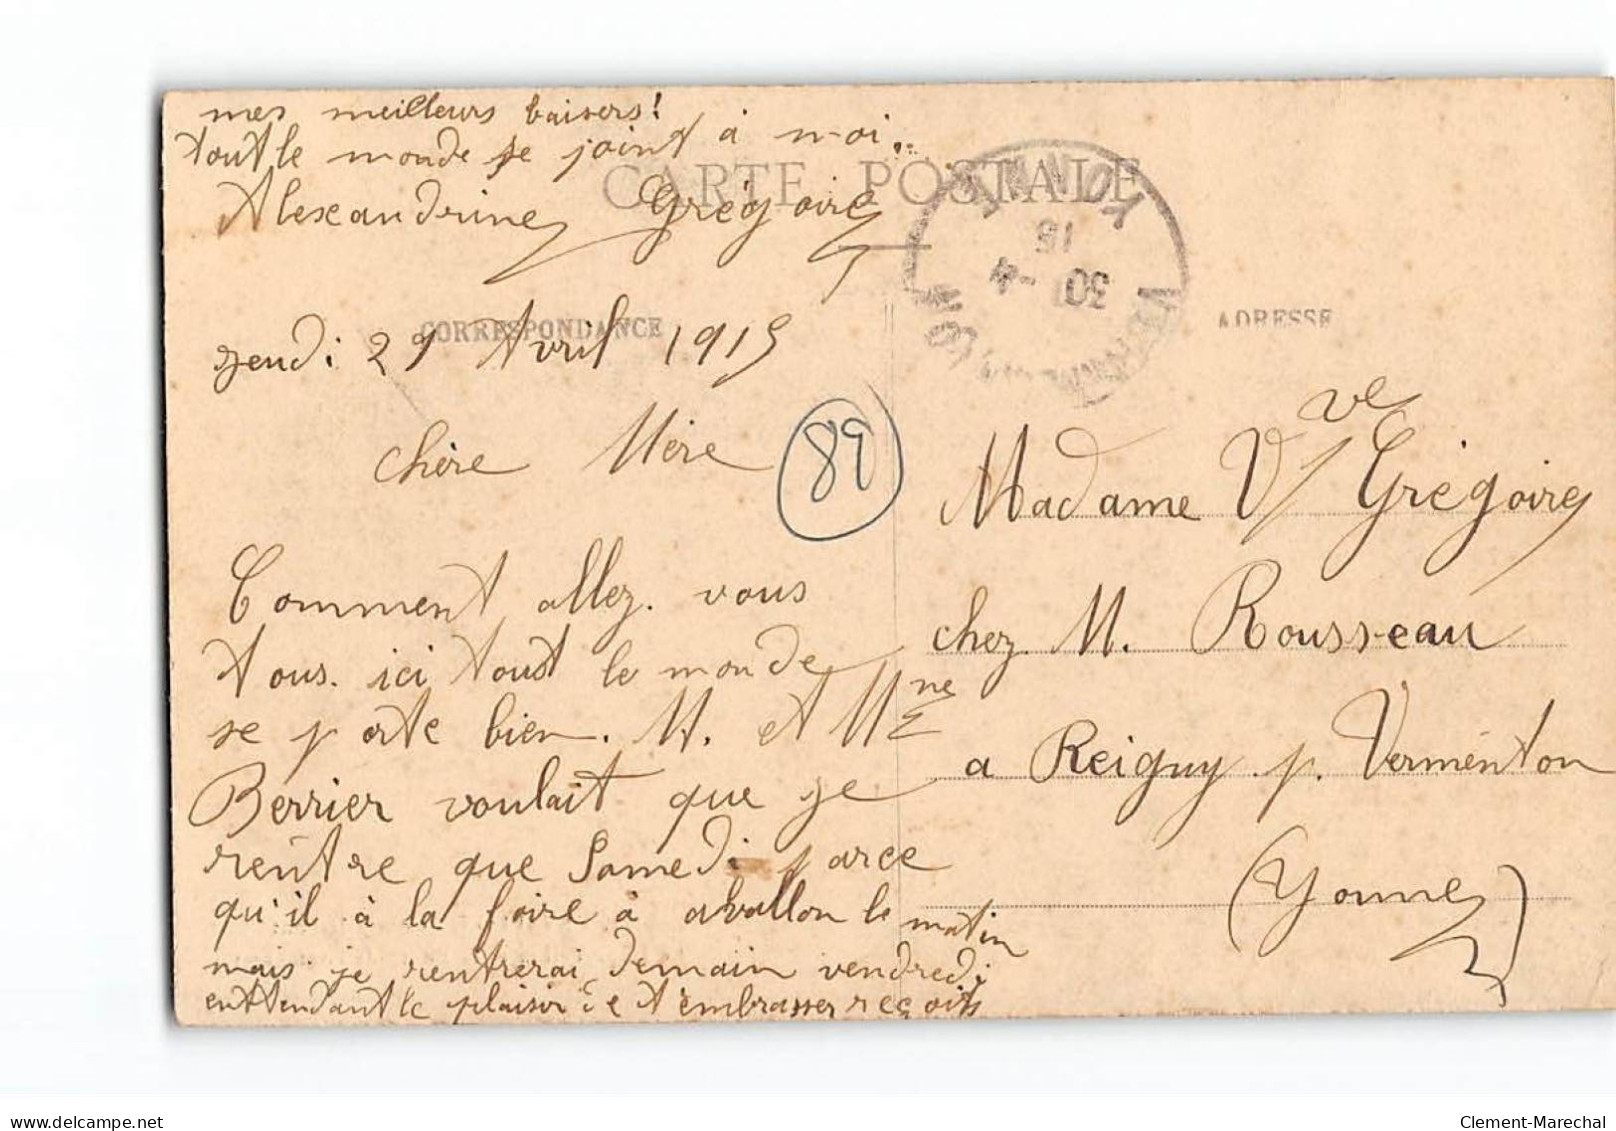 mes meilleurs baisers!
tout le monde se joint à moi..
CARTE POSTALE
Alexandrine Grégoire
15
30 -4
CORRESPONDANCE
ADRESSE
jeudi 29 Avril 1915
chère Mère
89
Comment allez. vous
tous. ici tout le monde
se porte bien. M. et Mme
Berrier voulait que je
rentre que Samedi parce
qu'il à la foire à avallon le matin
mais je rentrerai demain vendredi
enttendant le plaisir de t'embrasser reçoits
Madame Vve Grégoire
chez M. Rousseau
a Reigny p. Vermenton
(Yonne)
Clement-Marechal